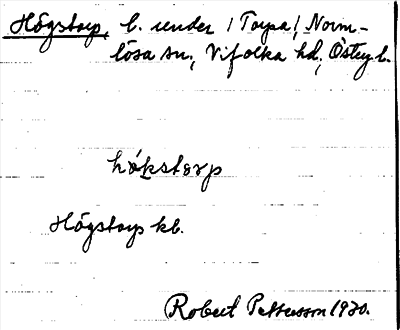 Högstorp, b. under /Torpa/, Norm-
lösa sn., Vifolka hd, Östergl.
hökstorp
Högstorp kb.
Robert Pettersson 1930.